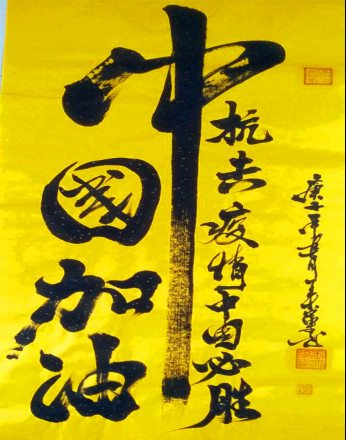 中國加油
抗击疫情中国必胜
庚子年